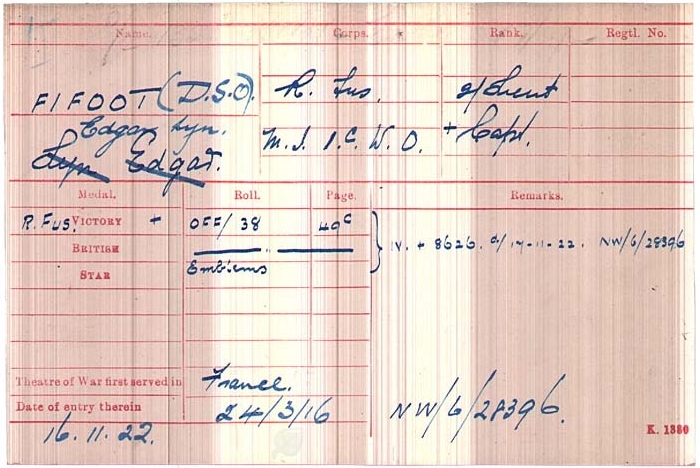 Name. Corps. Rank. Regtl. No.
FIFOOT (D.S.O). R. Fus. 2/Lieut
Edgar Lyn. M.I. I.C. W.O. + Capt.
Lyn Edgar.
Medal. Roll. Page. Remarks.
R. Fus. VICTORY + OFF/38 49C
BRITISH IV. + 8626. d/17-11-22. NW/6/28396
STAR Emblems
Theatre of War first served in France.
Date of entry therein 24/3/16 NW/6/28396.
16.11.22. K. 1380